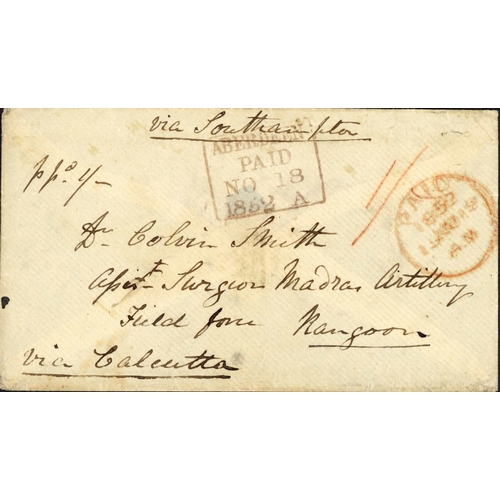 via Southampton
ABERDEEN
PAID
NO 18
1852 A
pp. 1/-
1/
PAID
1852
Dr Colvin Smith
Assist Surgeon Madras Artillery
Field force Rangoon
via Calcutta